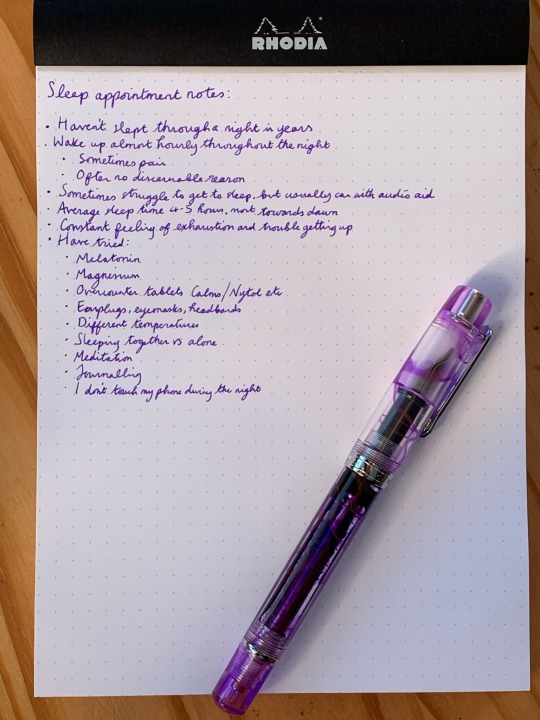 RHODIA
Sleep appointment notes:
• Haven't slept through a night in years
• Wake up almost hourly throughout the night
• Sometimes pain
• Often no discernable reason
• Sometimes struggle to get to sleep, but usually can with audio aid
• Average sleep time 4-5 hours, most towards dawn
• Constant feeling of exhaustion and trouble getting up
• Have tried:
• Melatonin
• Magnesium
• Overcounter tablets Calms/Nytol etc
• Earplugs, eyemasks, headbands
• Different temperatures
• Sleeping together vs alone
• Meditation
• Journalling
• I don't touch my phone during the night